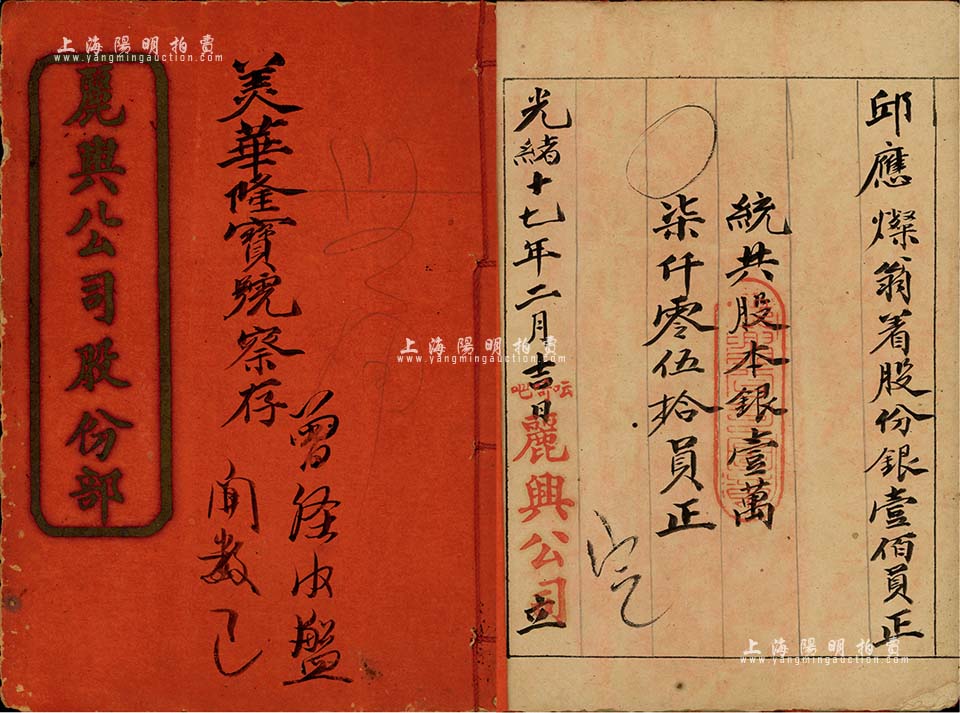 麗興公司股份部
美華隆寶號察存
曾經由盤
數已
邱應燦翁着股份銀壹佰員正
統共股本銀壹萬
柒仟零伍拾員正
光緒十七年二月吉日
吧哥呍
麗興公司立
上海陽明拍賣
www.yangmingauction.com
上海陽明拍賣
www.yangmingauction.com
上海陽明拍賣
www.yangmingauction.com